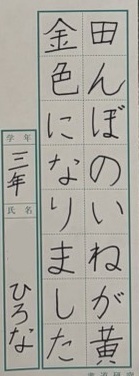 田んぼのいねが黄
金色になりました
学年
三年
氏名
ひろな